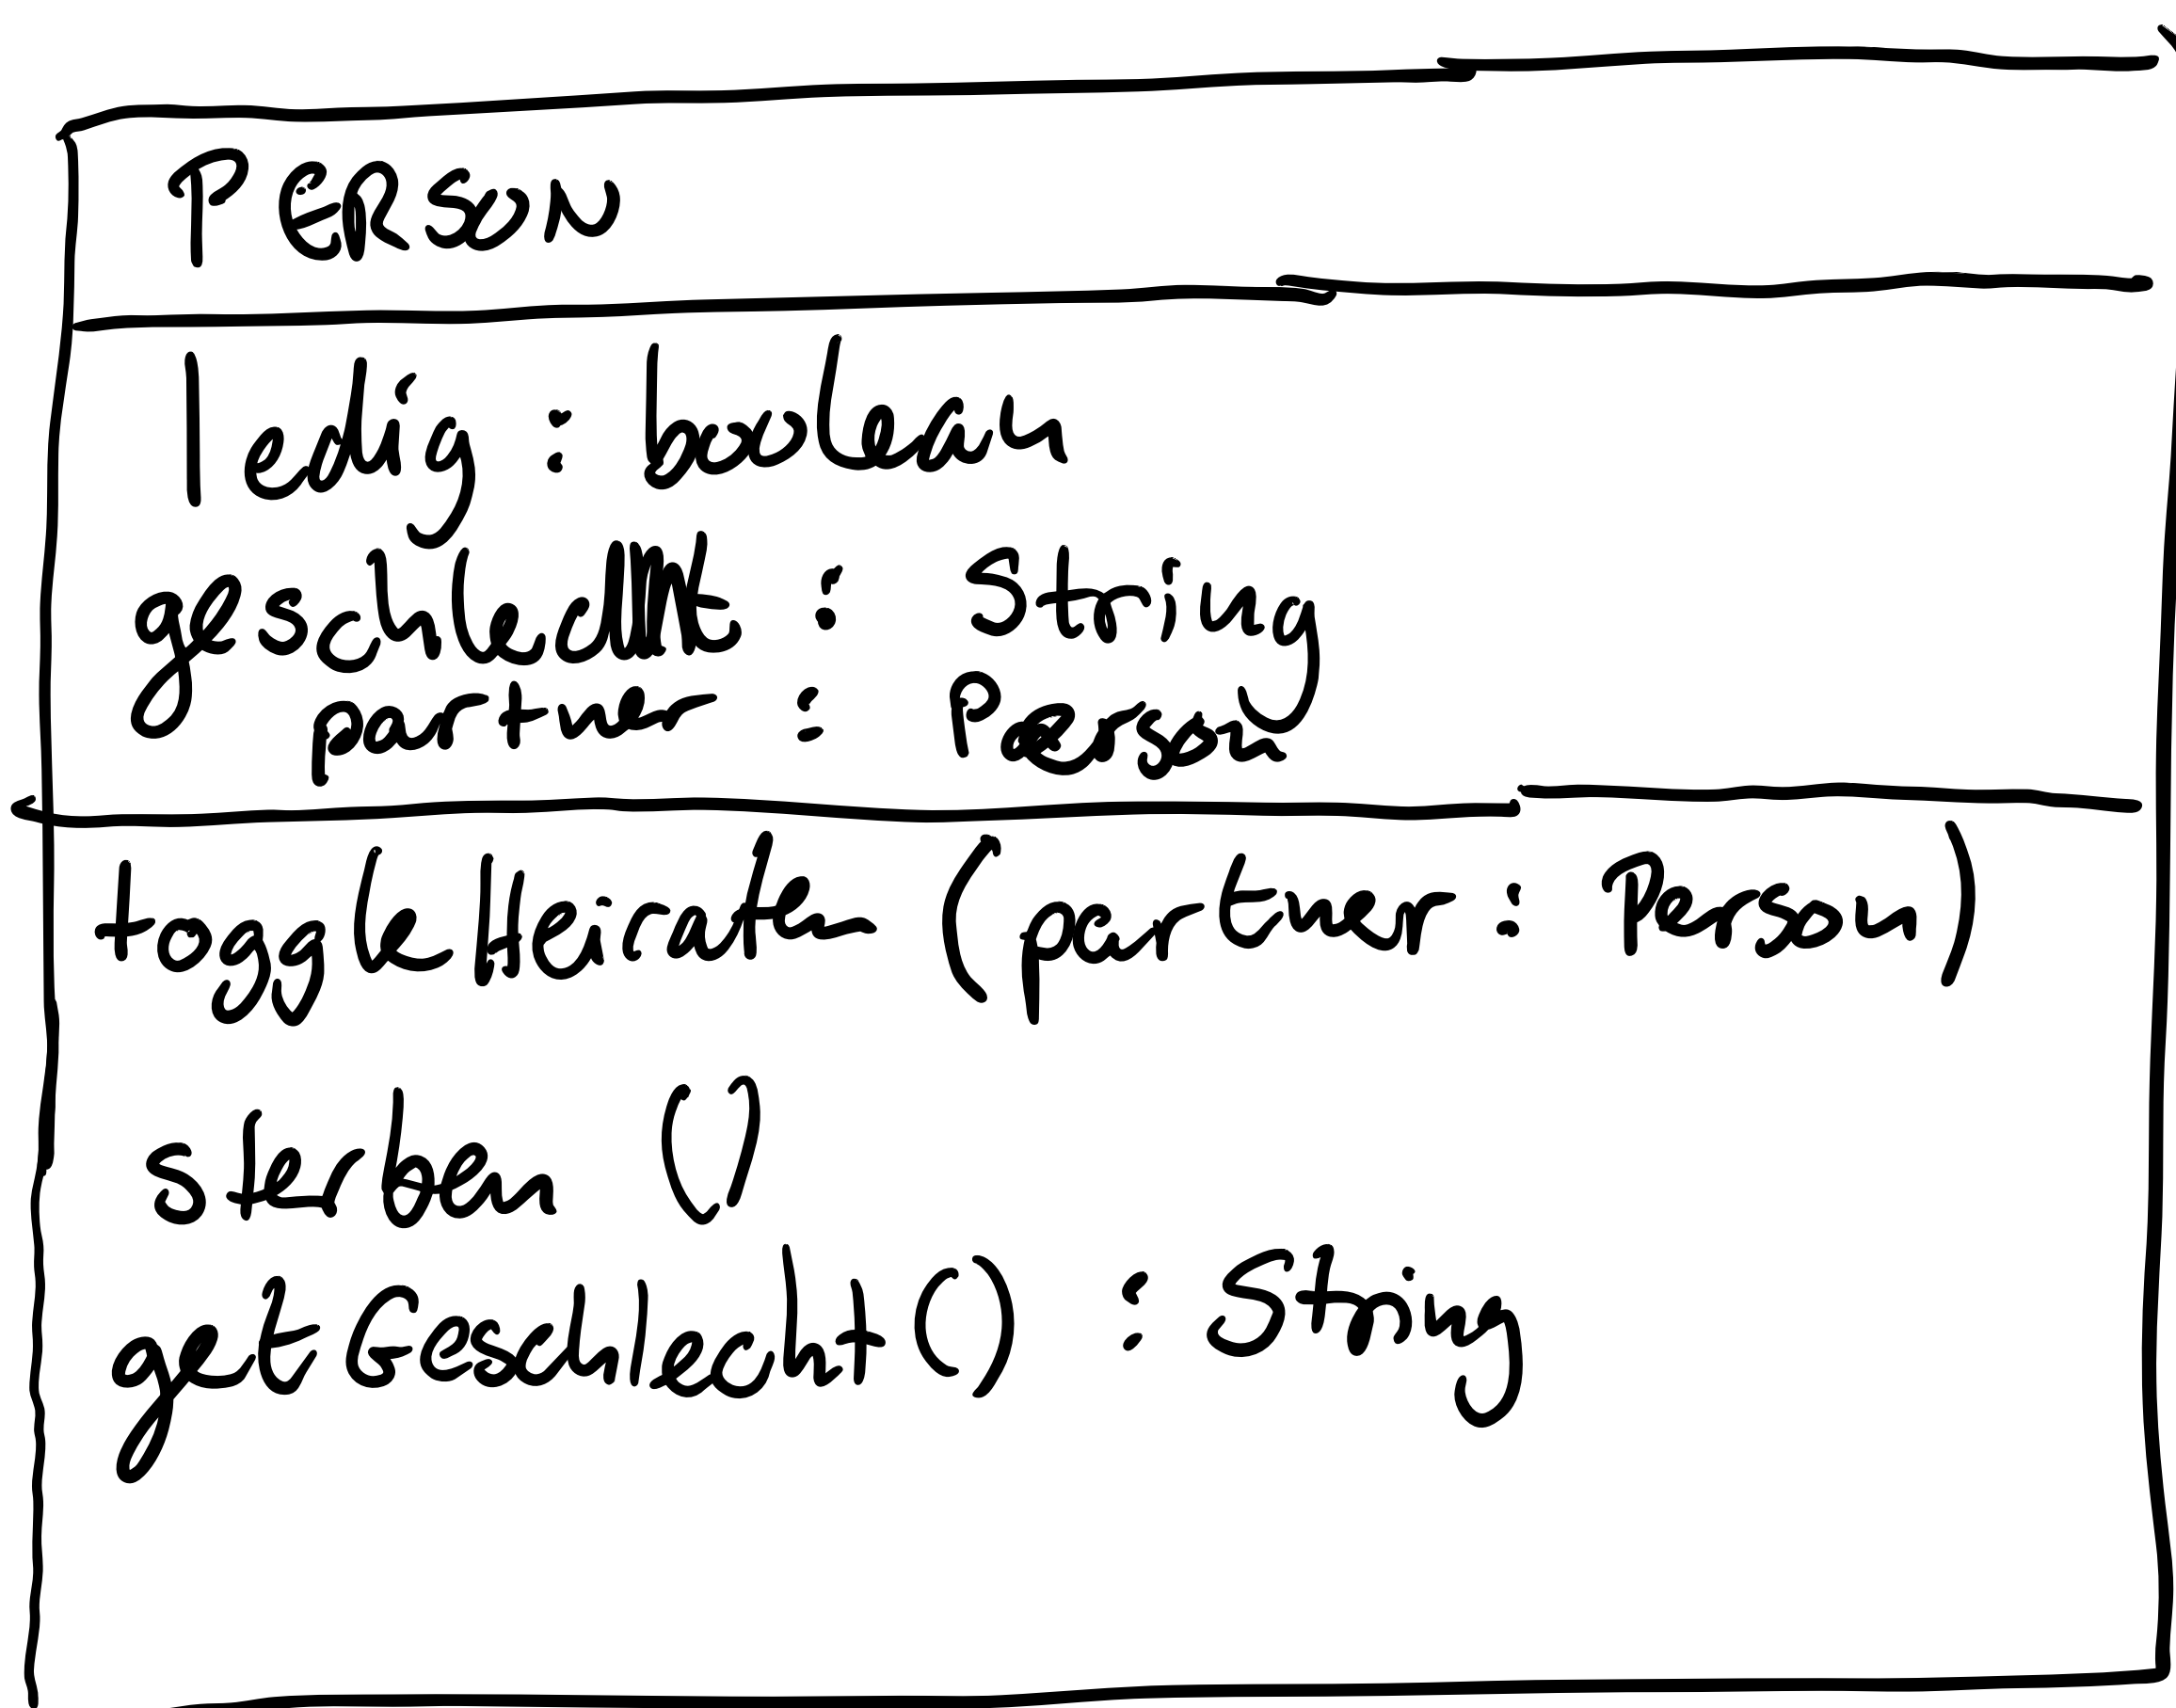 PERSON
ledig : boolean
geschlecht : String
partner : Person
toggleHeiraten (partner : Person)
sterben ()
getGeschlecht() : String